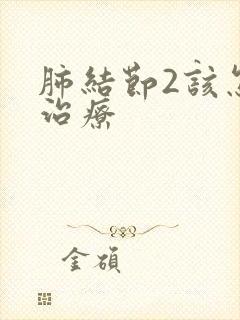 肺結節2該
治療
金碩